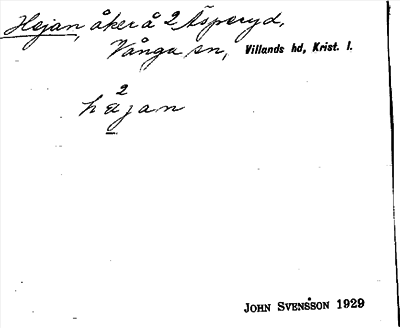 Hejan, åker å 2 Äsperyd,
Vånga sn, Villands hd, Krist. l.
2
hæjan
JOHN SVENSSON 1929